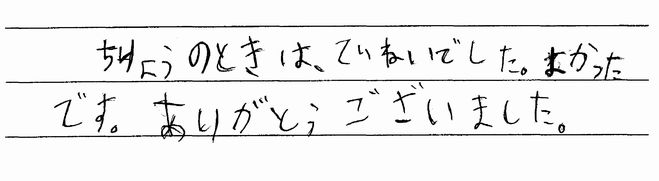 ちりょうのときは、ていねいでした。よかった
です。ありがとうございました。